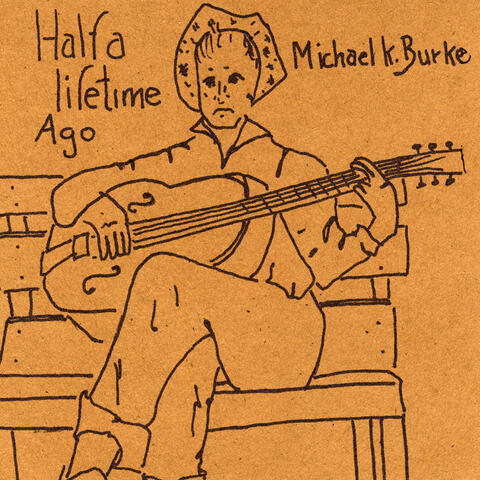 Half a
lifetime
Ago
Michael K. Burke